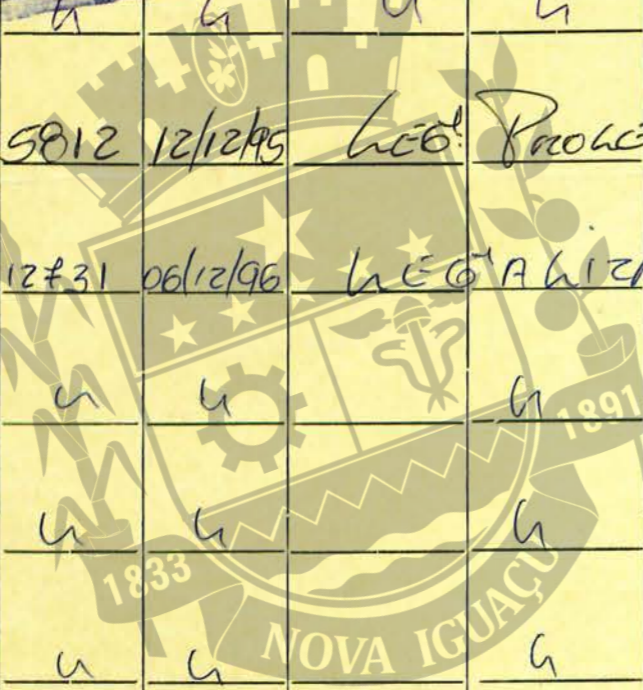 " " " "
5812 12/12/95 LEGL PROLE
12731 06/12/96 LEGALIZA
" " "
1891
" " "
1833
NOVA IGUAÇU
" " "